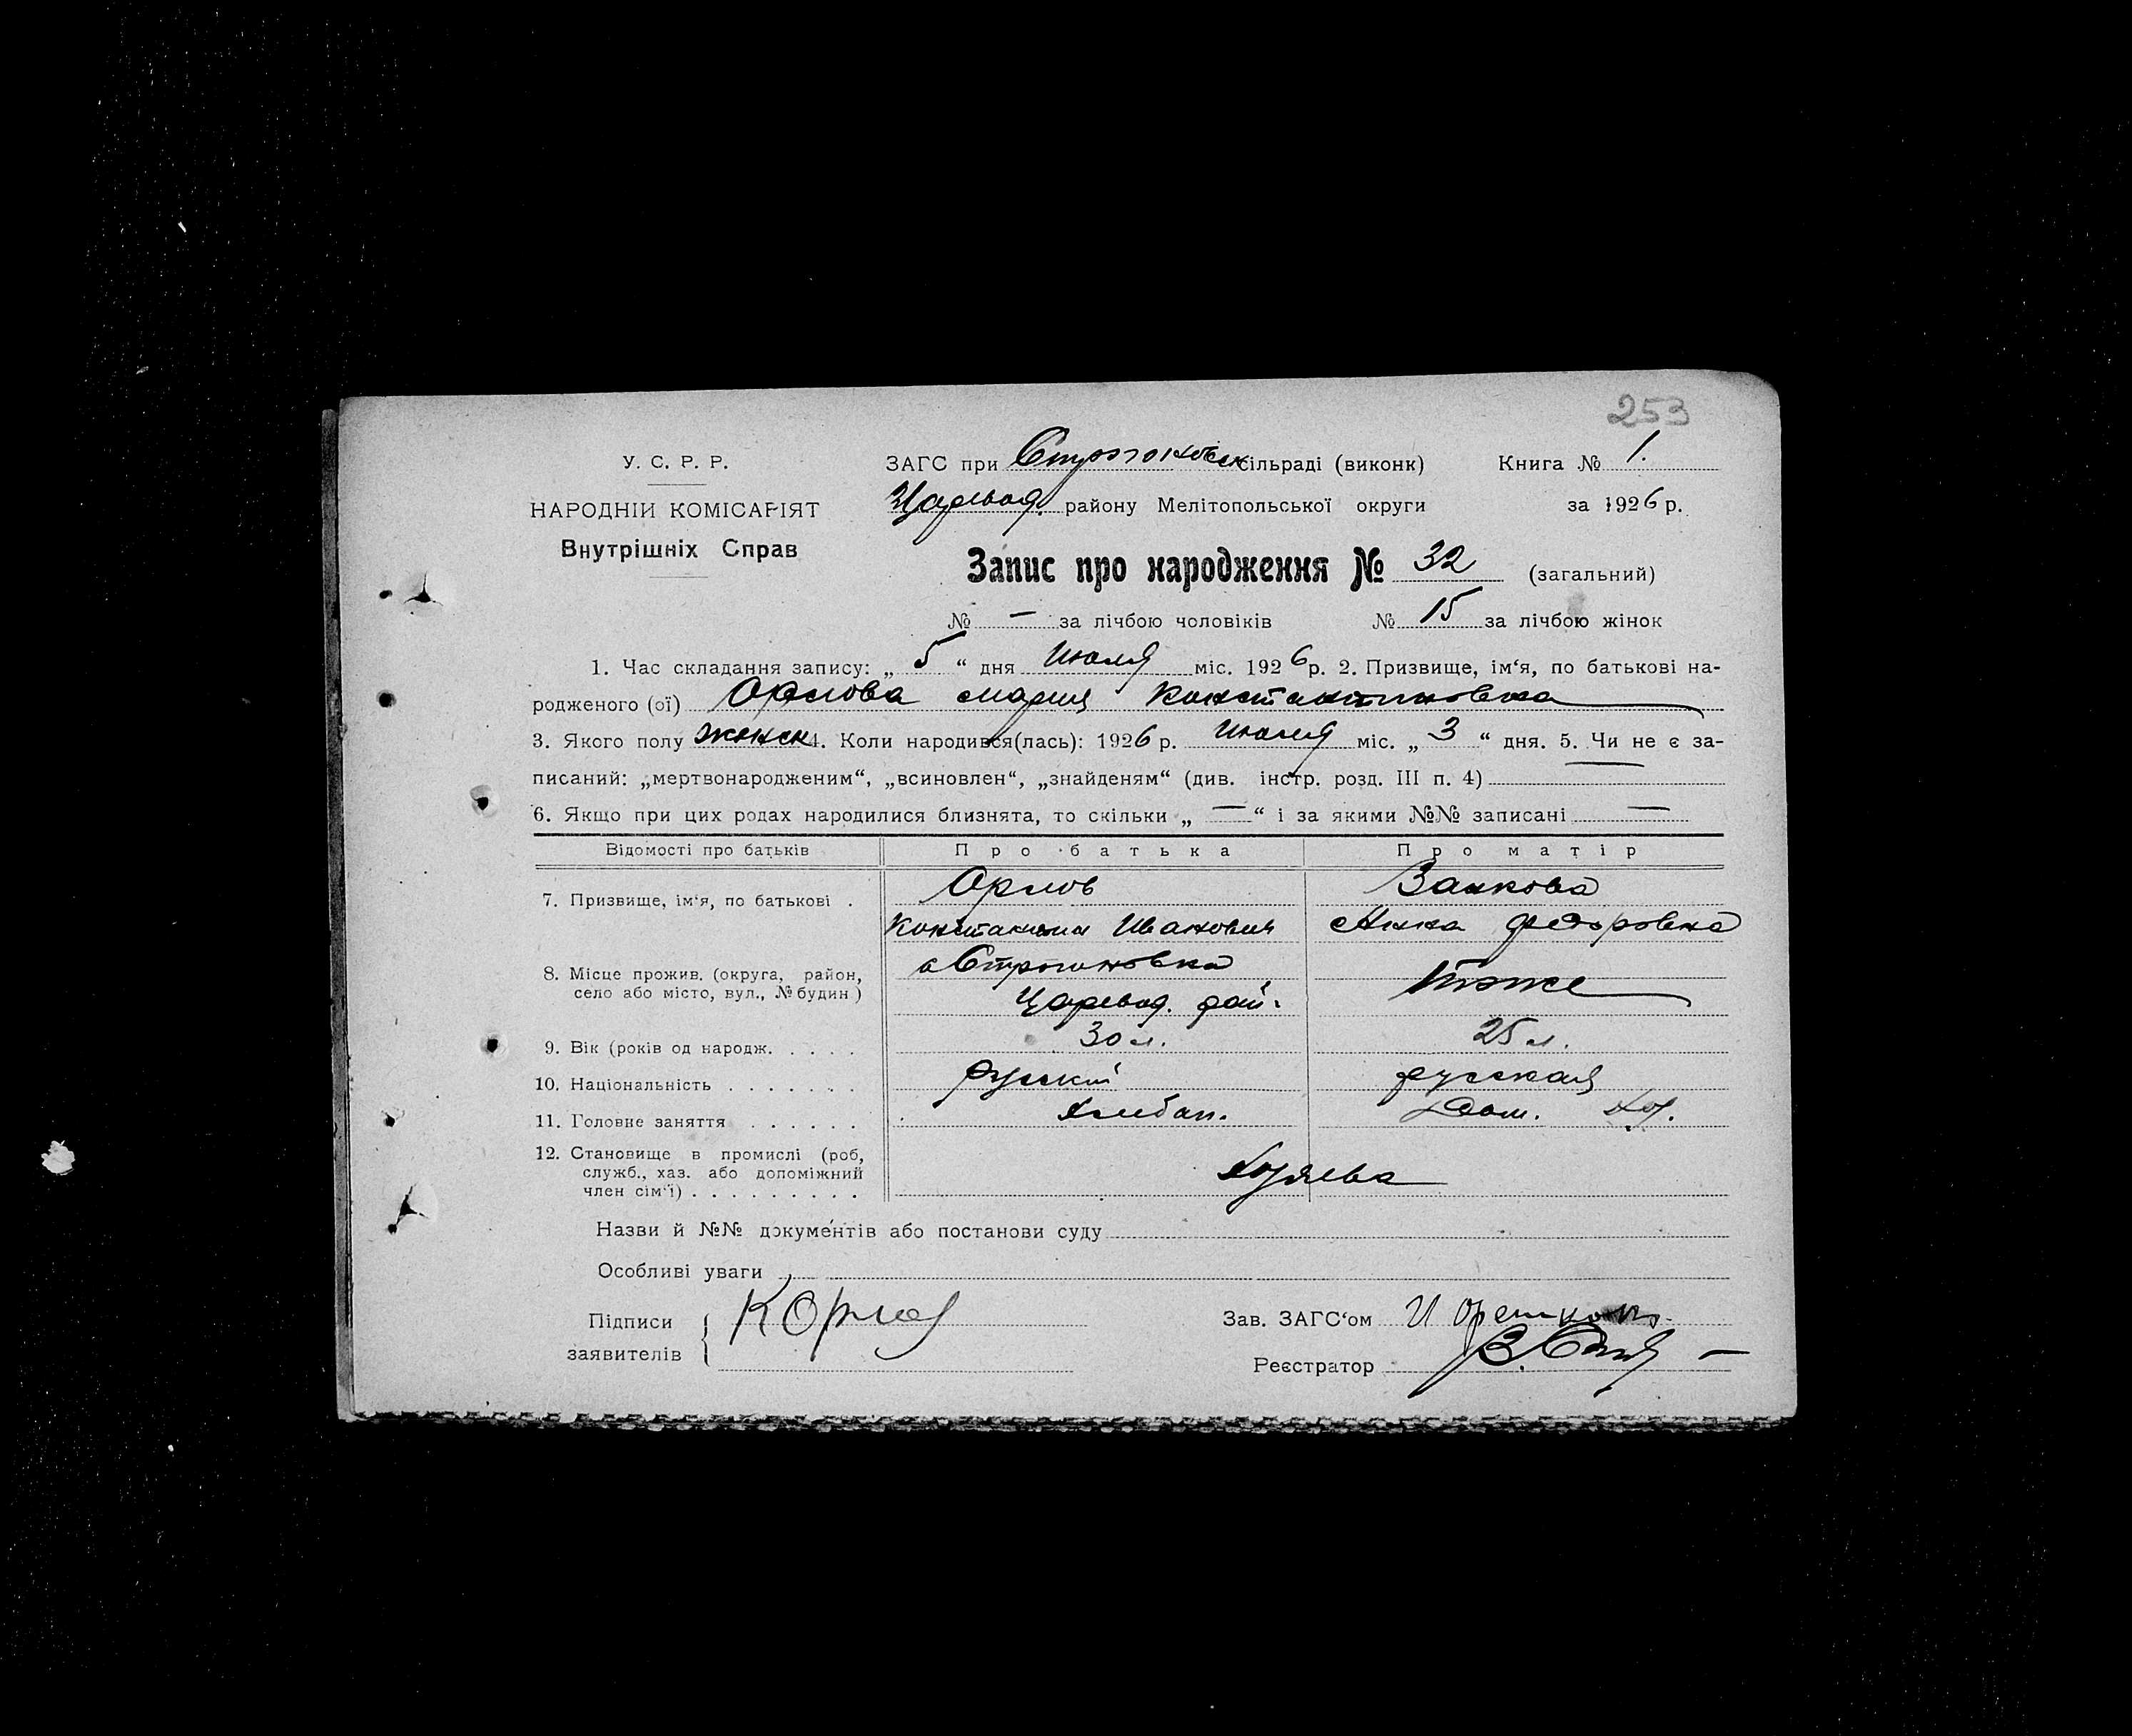 253
У. С. Р. Р.
ЗАГС при Строгоновск сільраді (виконк) Книга № 1.
НАРОДНІЙ КОМІСАРІЯТ
Царевод. району Мелітопольської округи за 1926 р.
Внутрішніх Справ
Запис про народження № 32 (загальний)
№ — за лічбою чоловіків № 15 за лічбою жінок
1. Час складання запису: „ 5 “ дня Июля міс. 1926 р. 2. Призвище, ім‘я, по батькові на-
родженого (ої) Орлова Мария Константиновна
3. Якого полу женск 4. Коли народився(лась): 1926 р. Июля міс. „ 3 “ дня. 5. Чи не є за-
писаний: „мертвонародженим“, „всиновлен“, „знайденям“ (див. інстр. розд. III п. 4) —
6. Якщо при цих родах народилися близнята, то скільки „ — “ і за якими №№ записані —
Відомості про батьків Про батька Про матір
7. Призвище, ім‘я, по батькові . Орлов Занкова
Константин Иванович Анна Федоровна
8. Місце прожив. (округа, район, село або місто, вул., № будин) с Строгоновка Тоже
Царевод. рай.
9. Вік (років од народж. . . . . 30 л. 25 л.
10. Національність . . . . . . Русский русская
11. Головне заняття . . . . . . Хлебоп. Дом. Хоз.
12. Становище в промислі (роб, служб., хаз. або допоміжний член сім‘ї) . . . . . . . . . Хозяева
Назви й №№ документів або постанови суду
Особливі уваги
Підписи заявителів К Орлов
Зав. ЗАГС‘ом И
Реєстратор В.